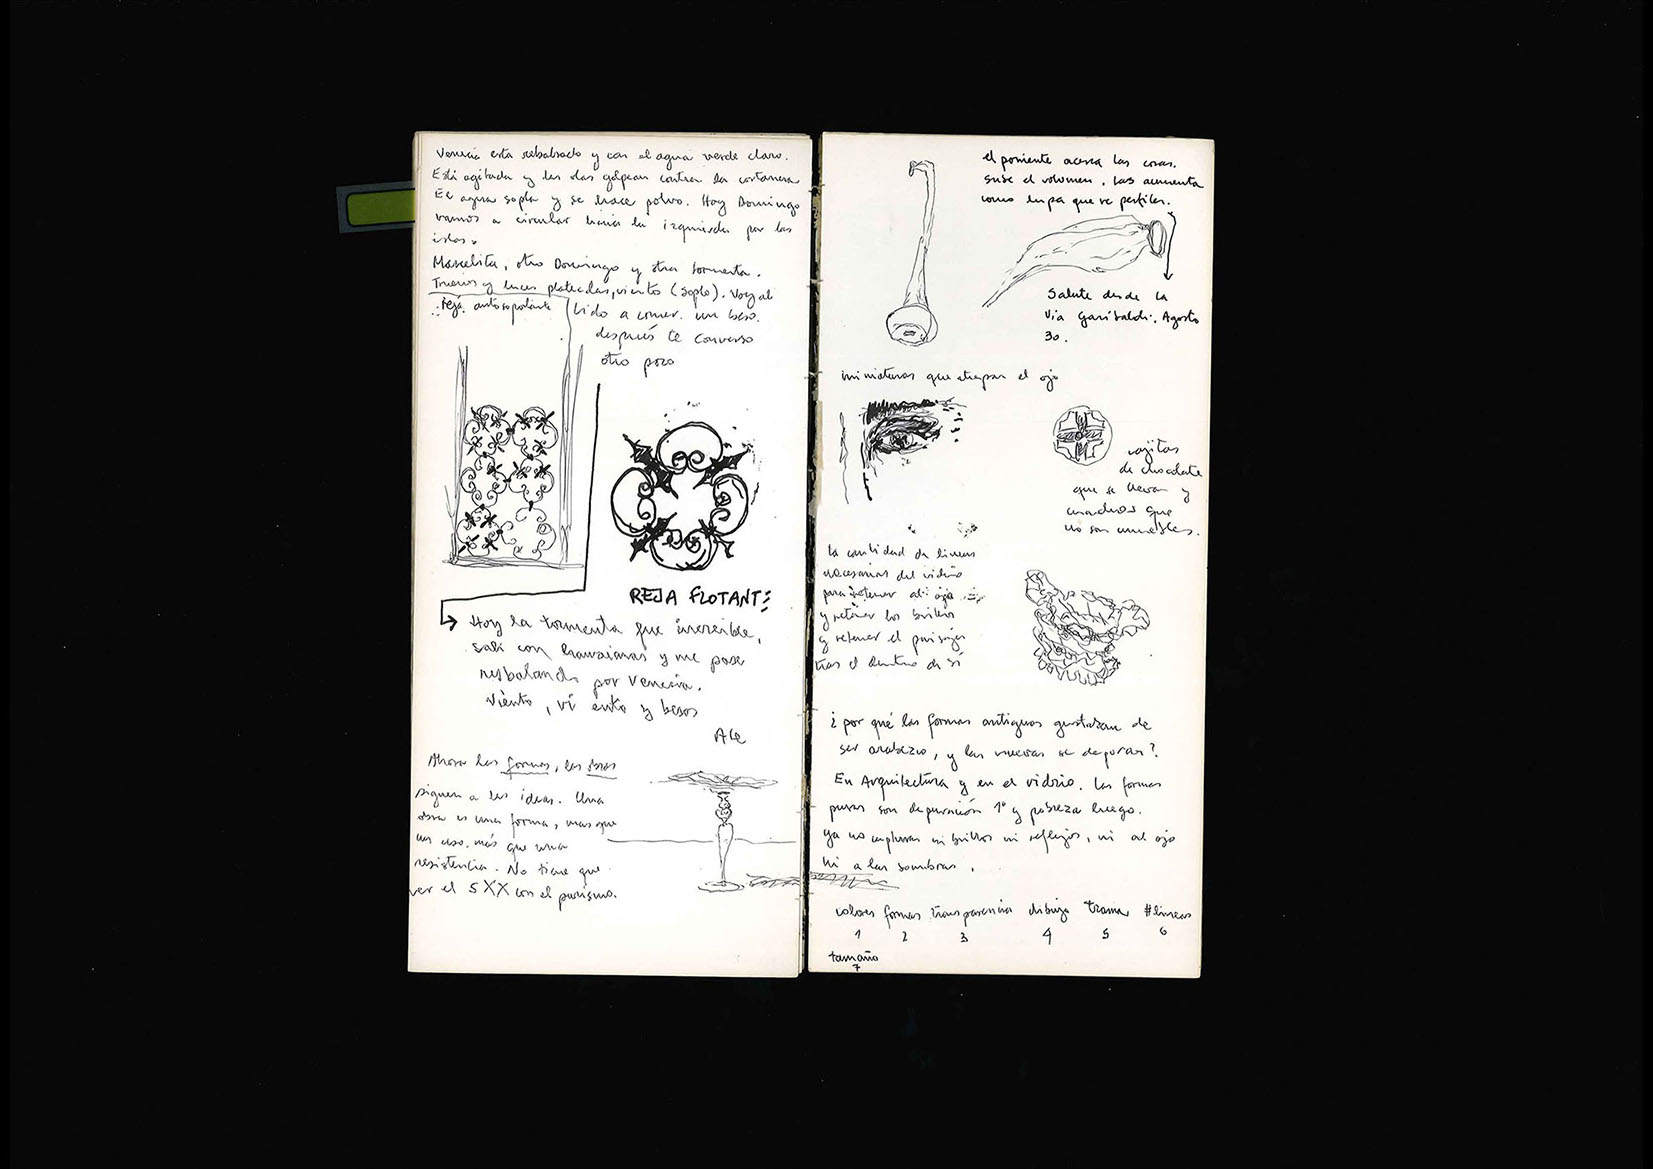 Venecia está rebalsado y con el agua verde claro.
Está agitada y las olas golpean contra la costanera
El agua sopla y se hace polvo. Hoy Domingo
vamos a circular hacia la izquierda por las
islas.
otro Domingo y otra tormenta.
Truenos y luces plateadas, viento (soplo). Voy al
lido a comer. un beso.
después te converso
otro poco
Reja autosoportante
REJA FLOTANTE
Hoy la tormenta fue increíble,
salí con hawaianas y me pase
resbalando por Venecia.
Viento, vi ento y besos
Ale
Ahora las formas, las obras
siguen a las ideas. Una
obra es una forma, mas que
un uso, más que una
resistencia. No tiene que
ver el SXX con el purismo.
el poniente acerca las cosas.
sube el volumen. las aumenta
como lupa que ve perfiles.
Salute desde la
Via Garibaldi. Agosto
30.
miniaturas que atrapan el ojo
cajitas
de chocolate
que se llevan y
cuadros que
no son muebles.
la cantidad de lineas
necesarias del vidrio
para retener al ojo
y retener los brillos
y retener el paisaje
tras el dentro de sí
¿por qué las formas antiguas gustaban de
ser arabezco, y las nuevas se depuran?
En Arquitectura y en el vidrio. Las formas
puras son depuración 1º y pobreza luego.
ya no capturan ni brillos ni reflejos, ni al ojo
ni a las sombras.
colores formas transparencia dibujo trama #lineas
1 2 3 4 5 6
tamaño
7